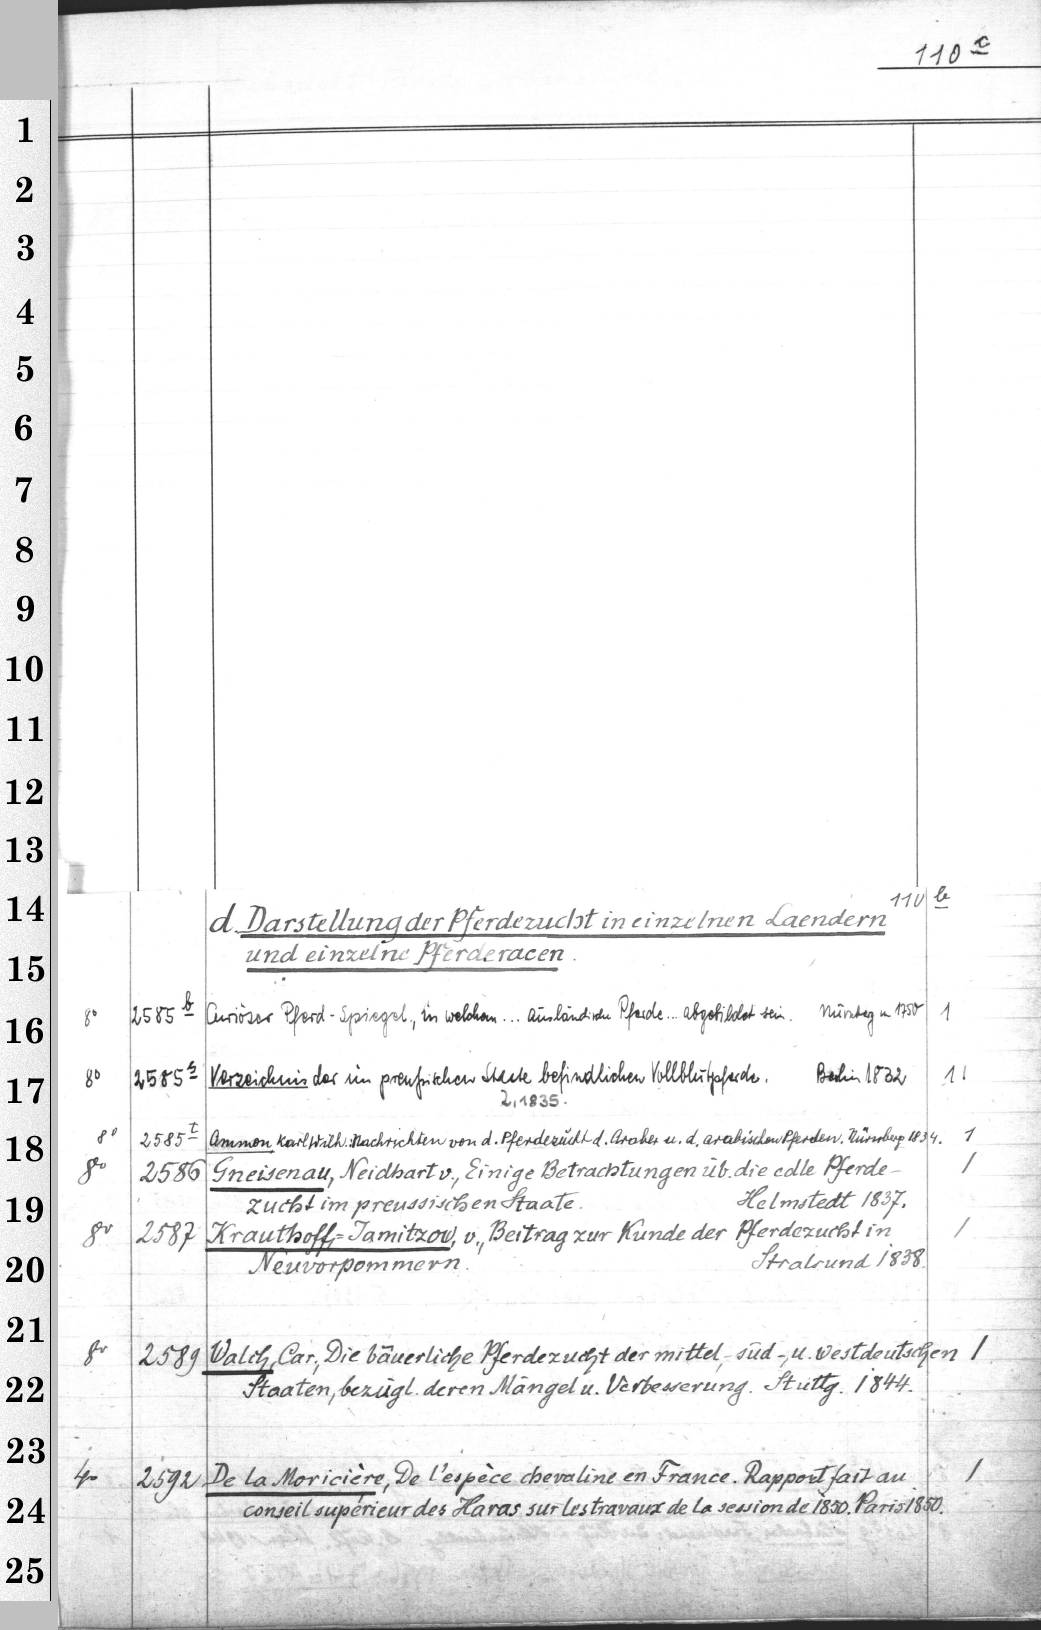 110 c
1
2
3
4
5
6
7
8
9
10
11
12
13
14
15
16
17
18
19
20
21
22
23
24
25
110 b
d. Darstellung der Pferdezucht in einzelnen Laendern
und einzelne Pferderacen.
8° 2585 b Curiöser Pferd-Spiegel, in welchem ... ausländische Pferde ... abgebildet sein. Nürnberg 1750 1
8° 2585 s Verzeichnis der im preußischen Staate befindlichen Vollblutpferde. Berlin 1832 1!
2, 1835.
8° 2585 t Ammon, Karl Wilh. Nachrichten von d. Pferdezucht d. Araber u. d. arabischen Pferden. Nürnberg 1834. 1
8° 2586 Gneisenau, Neidhart v., Einige Betrachtungen üb. die edle Pferde-
zucht im preussischen Staate. Helmstedt 1837. 1
8° 2587 Krauthoff=Jamitzow, v., Beitrag zur Kunde der Pferdezucht in
Neuvorpommern. Stralsund 1838. 1
8° 2589 Walch, Car., Die bäuerliche Pferdezucht der mittel-, süd-, u. westdeutschen 1
Staaten, bezügl. deren Mängel u. Verbesserung. Stuttg. 1844.
4° 2592 De la Moricière, De l'espèce chevaline en France. Rapport fait au 1
conseil supérieur des Haras sur les travaux de la session de 1850. Paris 1850.